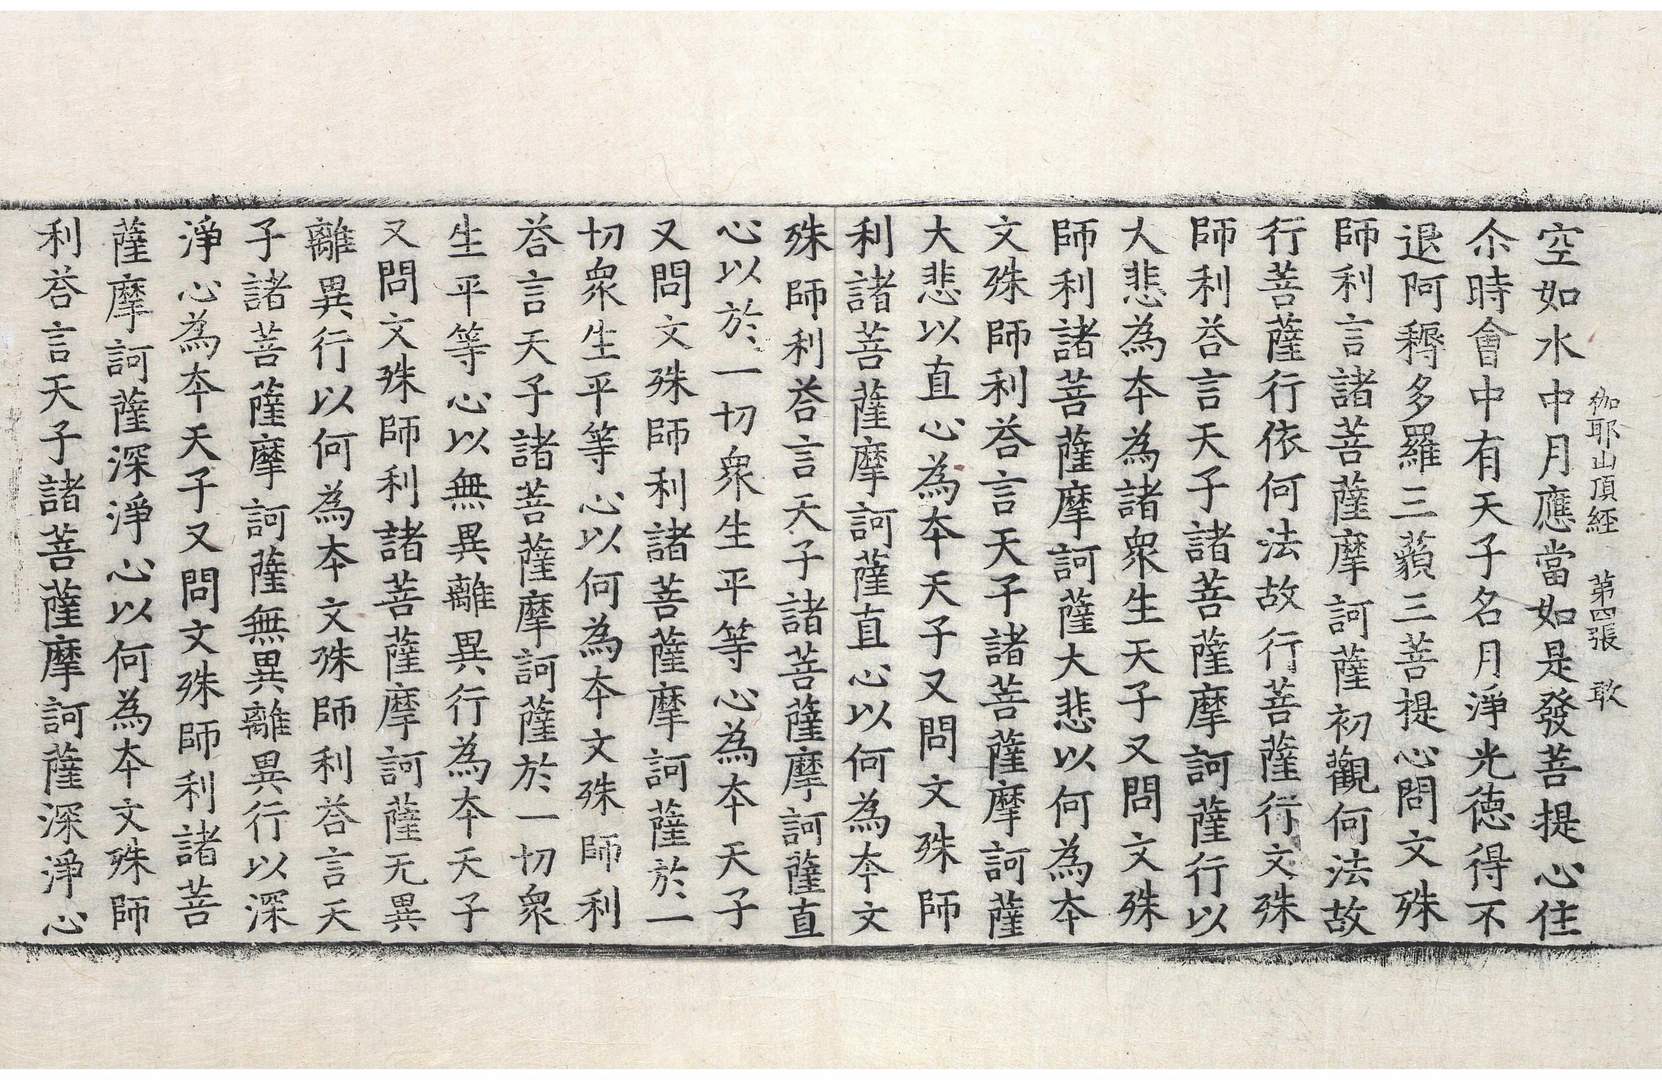 伽耶山頂経 第四張 敢
空如水中月應當如是發菩提心住
尒時會中有天子名月淨光德得不
退阿耨多羅三藐三菩提心問文殊
師利言諸菩薩摩訶薩初觀何法故
行菩薩行依何法故行菩薩行文殊
師利荅言天子諸菩薩摩訶薩行以
大悲為夲為諸衆生天子又問文殊
師利諸菩薩摩訶薩大悲以何為夲
文殊師利荅言天子諸菩薩摩訶薩
大悲以直心為夲天子又問文殊師
利諸菩薩摩訶薩直心以何為夲文
殊師利荅言天子諸菩薩摩訶薩直
心以於一切衆生平等心為夲天子
又問文殊師利諸菩薩摩訶薩於一
切衆生平等心以何為夲文殊師利
荅言天子諸菩薩摩訶薩於一切衆
生平等心以無異離異行為夲天子
又問文殊師利諸菩薩摩訶薩无異
離異行以何為夲文殊師利荅言天
子諸菩薩摩訶薩無異離異行以深
淨心為夲天子又問文殊師利諸菩
薩摩訶薩深淨心以何為夲文殊師
利荅言天子諸菩薩摩訶薩深淨心